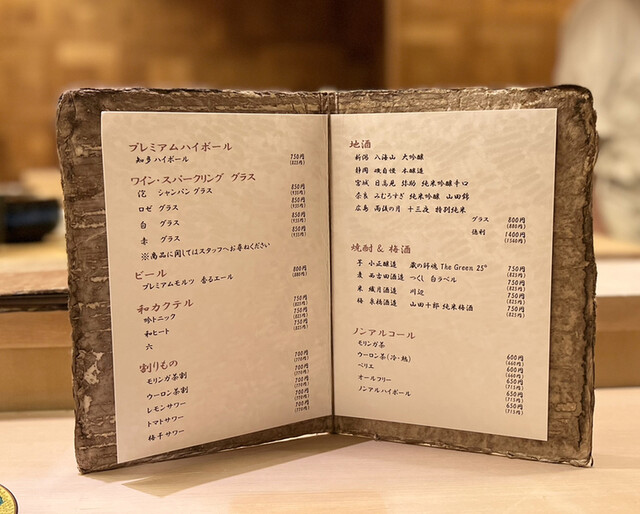 プレミアムハイボール
知多ハイボール 750円 (825円)
ワイン・スパークリング グラス
泡 シャンパングラス 850円 (935円)
ロゼ グラス 850円 (935円)
白 グラス 850円 (935円)
赤 グラス 850円 (935円)
※商品に関してはスタッフへお尋ねください
ビール
プレミアムモルツ 香るエール 800円 (880円)
和カクテル
吟トニック 750円 (825円)
和ヒート 750円 (825円)
六 750円 (825円)
割りもの
モリンガ茶割 700円 (770円)
ウーロン茶割 700円 (770円)
レモンサワー 700円 (770円)
トマトサワー 700円 (770円)
梅干サワー 700円 (770円)
地酒
新潟 八海山 大吟醸
静岡 磯自慢 本醸造
宮城 日高見 弥助 純米吟醸辛口
奈良 みむろすぎ 純米吟醸 山田錦
広島 雨後の月 十三夜 特別純米
グラス 800円 (880円)
徳利 1400円 (1540円)
焼酎 & 梅酒
芋 小正醸造 蔵の師魂 The Green 25° 750円 (825円)
麦 西吉田酒造 つくし 白ラベル 750円 (825円)
米 繊月酒造 川辺 750円 (825円)
梅 泉橋酒造 山田十郎 純米梅酒 750円 (825円)
ノンアルコール
モリンガ茶 600円 (660円)
ウーロン茶(冷・熱) 600円 (660円)
ペリエ 650円 (715円)
オールフリー 650円 (715円)
ノンアルハイボール 650円 (715円)